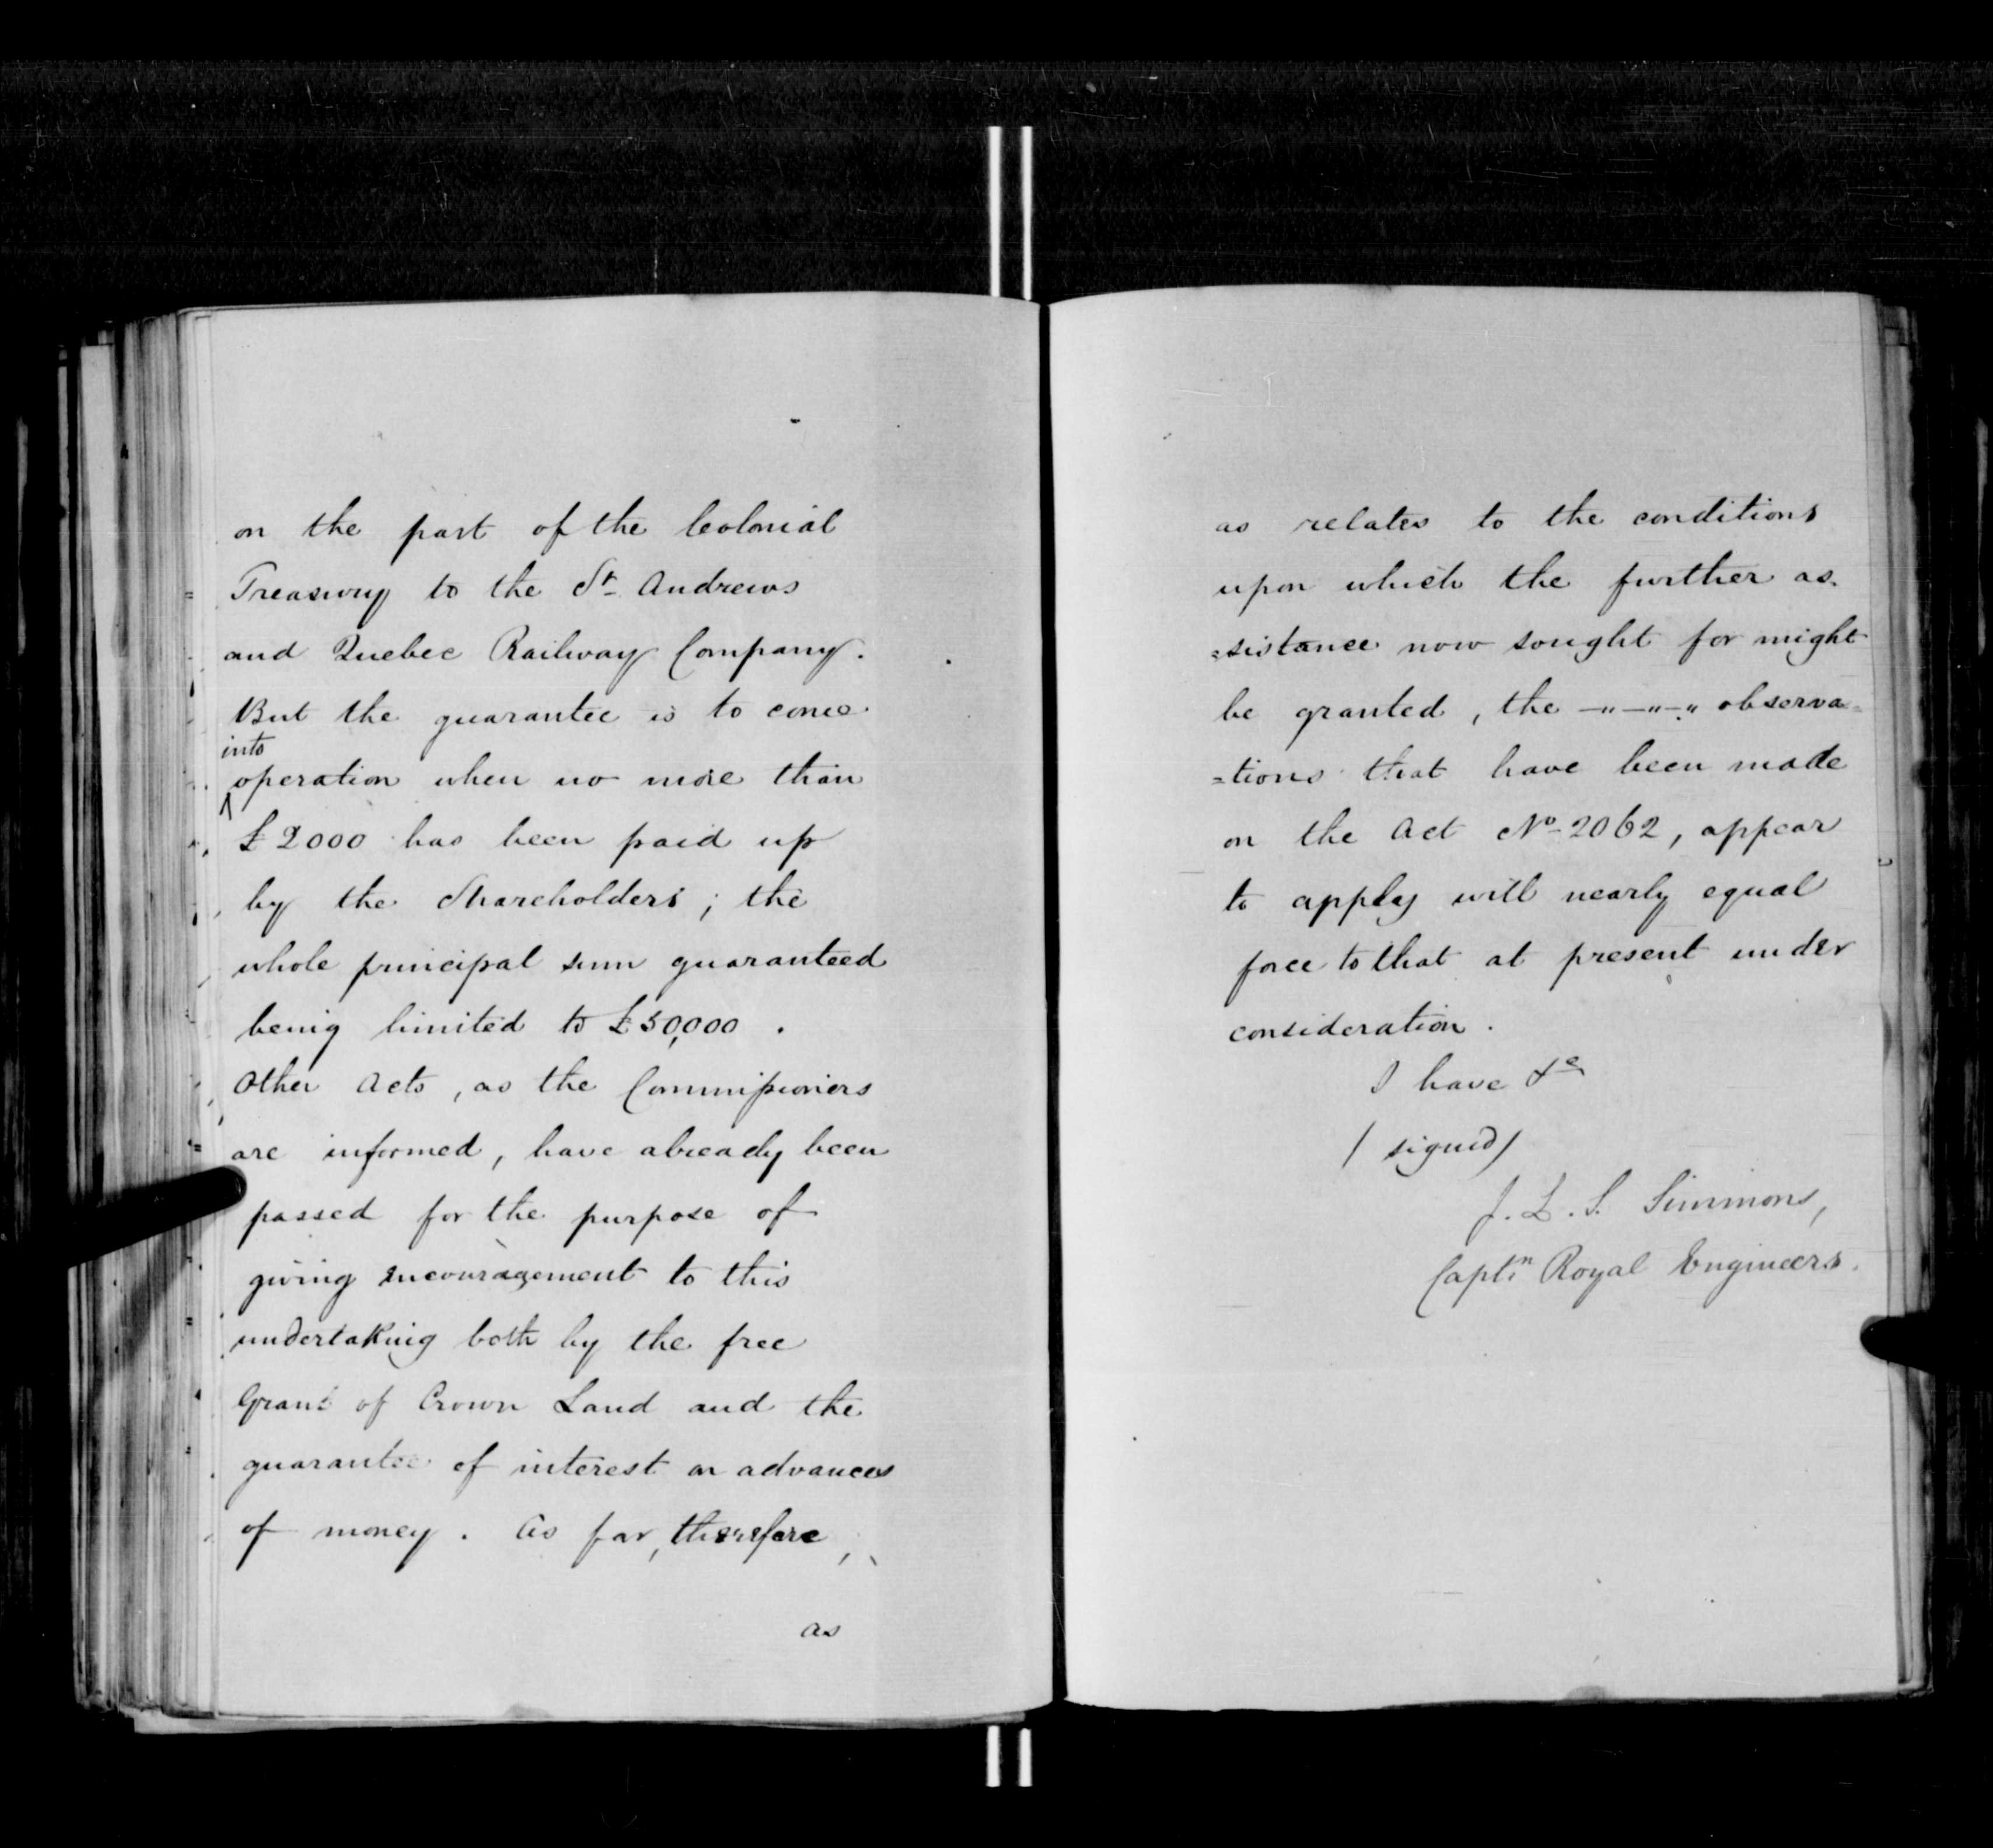 on the part of the Colonial
Treasury to the St. Andrews
and Quebec Railway Company.
But the guarantee is to come
into
operation when no more than
£2000 has been paid up
by the Shareholders; the
whole principal sum guaranteed
being limited to £50,000.
Other Acts, as the Commissioners
are informed, have already been
passed for the purpose of
giving encouragement to this
undertaking both by the free
Grant of Crown Land and the
guarantee of interest on advances
of money. As far, therefore,
as
as relates to the conditions
upon which the further as-
=sistance now sought for might
be granted, the —"—"—" observa=
=tions that have been made
on the Act No. 2062, appear
to apply with nearly equal
force to that at present under
consideration.
I have &c
(signed)
J. L. S. Simmons,
Captn Royal Engineers.